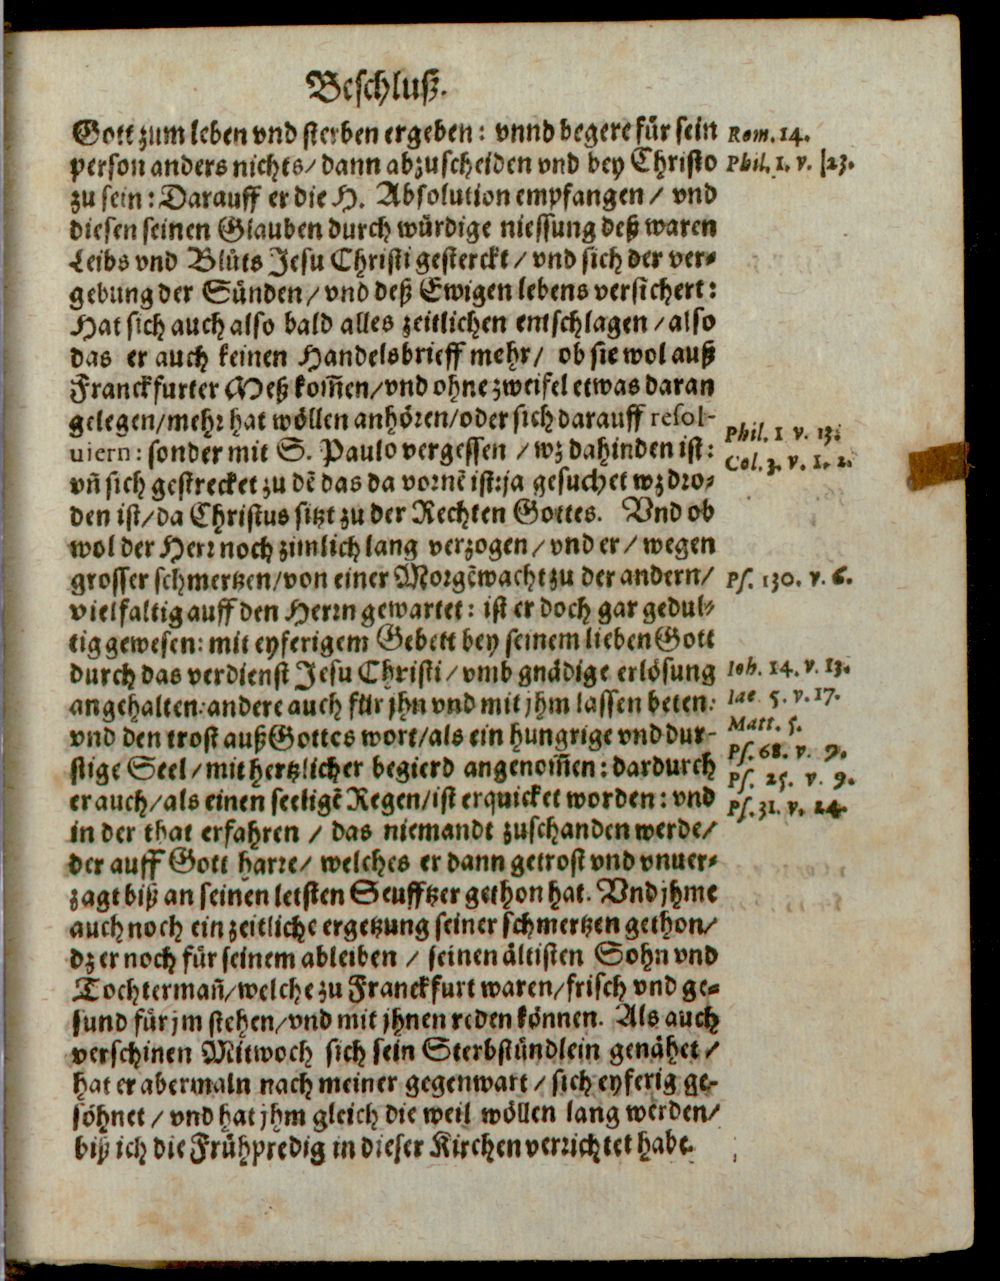 Beschluß.
Gott zum leben vnd sterben ergeben: vnnd begere für sein
person anders nichts/ dann abzuscheiden vnd bey Christo
zu sein: Darauff er die H. Absolution empfangen / vnd
diesen seinen Glauben durch würdige niessung deß waren
Leibs vnd Blůts Jesu Christi gesterckt / vnd sich der ver⸗
gebung der Sünden / vnd deß Ewigen lebens versichert:
Hat sich auch also bald alles zeitlichen entschlagen / also
das er auch keinen Handelsbrieff mehr/ ob sie wol auß
Franckfurter Meß kom̃en/vnd ohne zweifel etwas daran
gelegen/mehr hat wöllen anhören/oder sich darauff resol-
uiern: sonder mit S. Paulo vergessen / wz dahinden ist:
vñ sich gestrecket zu dẽ das da vornẽ ist:ja gesuchet wz dro⸗
den ist/da Christus sitzt zu der Rechten Gottes. Vnd ob
wol der Herr noch zimlich lang verzogen / vnd er / wegen
grosser schmertzen/von einer Morgẽwacht zu der andern/
vielfaltig auff den Herrn gewartet: ist er doch gar gedul⸗
tig gewesen: mit eyferigem Gebett bey seinem lieben Gott
durch das verdienst Jesu Christi / vmb gnädige erlösung
angehalten: andere auch für jhn vnd mit jhm lassen beten:
vnd den trost auß Gottes wort/als ein hungrige vnd dur-
stige Seel / mit hertzlicher begierd angenom̃en: dardurch
er auch/als einen seeligẽ Regen/ist erquicket worden: vnd
in der that erfahren / das niemandt zuschanden werde/
der auff Gott harre/ welches er dann getrost vnd vnuer⸗
zagt biß an seinen letsten Seufftzer gethon hat. Vnd jhme
auch noch ein zeitliche ergetzung seiner schmertzen gethon/
dz er noch für seinem ableiben / seinen ältisten Sohn vnd
Tochtermañ/welche zu Franckfurt waren/frisch vnd ge⸗
sund für jm stehen/vnd mit jhnen reden können. Als auch
verschinen Mitwoch sich sein Sterbstündlein genähet /
hat er abermaln nach meiner gegenwart / sich eyferig ge-
söhnet / vnd hat jhm gleich die weil wöllen lang werden/
biß ich die Frühpredig in dieser Kirchen verrichtet habe.
Rom. 14.
Phil. 1. v. 23.
Phil. 1 v. 13.
Col. 3. v. 1. 2.
Ps. 130. v. 6.
Ioh. 14. v. 13.
Iac 5. v. 17.
Matt. 5.
Ps. 68. v. 9.
Ps. 25. v. 9.
Ps. 31. v. 24.